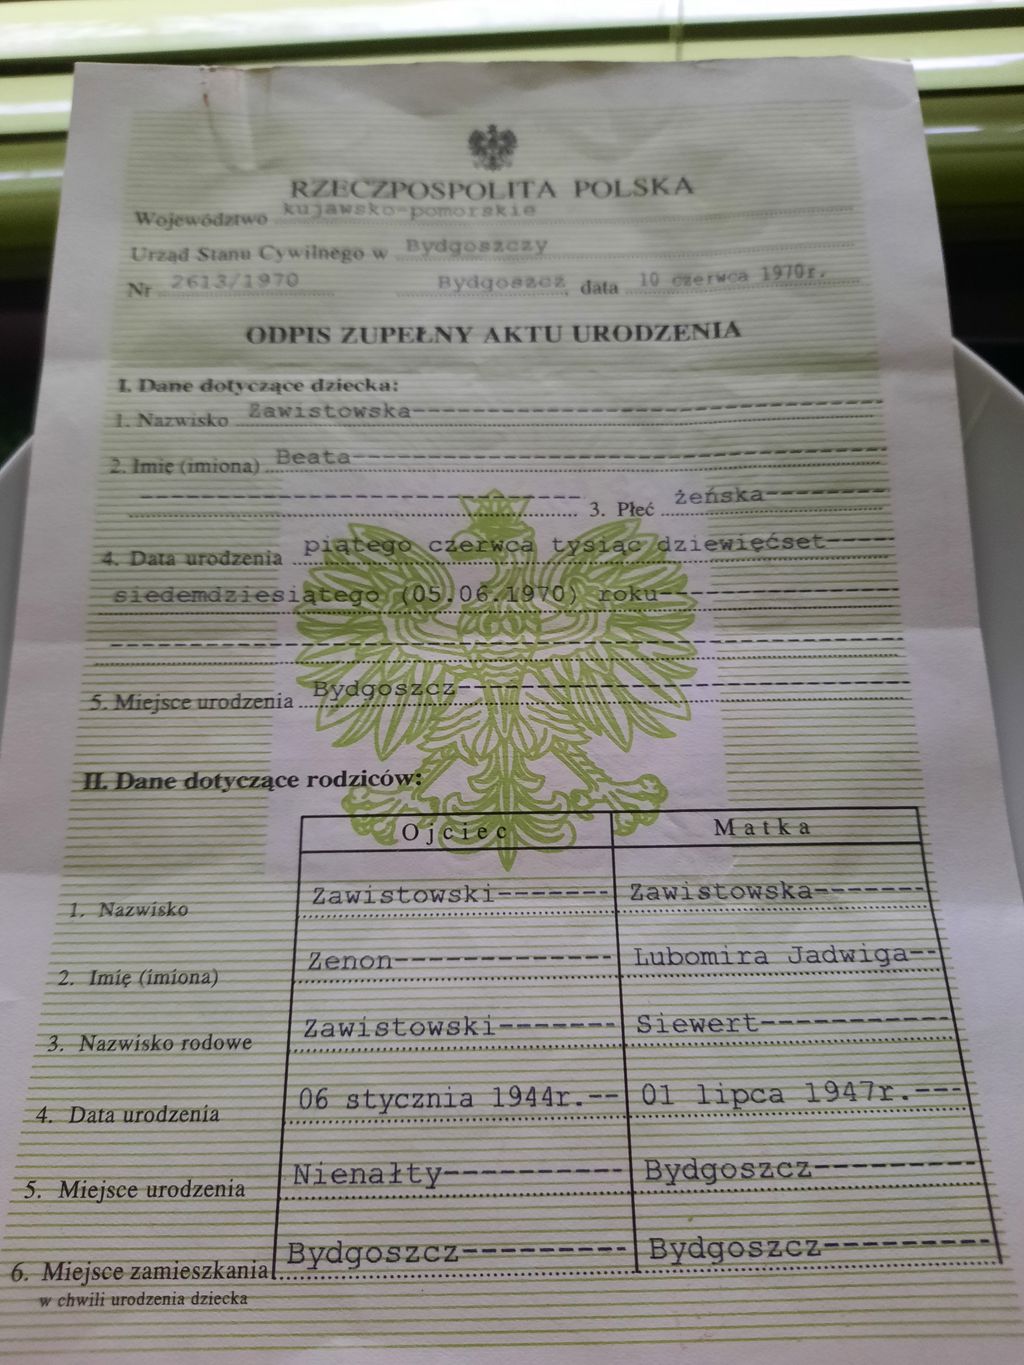 RZECZPOSPOLITA POLSKA
Województwo kujawsko-pomorskie
Urząd Stanu Cywilnego w Bydgoszczy
Nr 2613/1970 Bydgoszcz, data 10 czerwca 1970r.
ODPIS ZUPEŁNY AKTU URODZENIA
I. Dane dotyczące dziecka:
1. Nazwisko Zawistowska
2. Imię (imiona) Beata
3. Płeć żeńska
4. Data urodzenia piątego czerwca tysiąc dziewięćset
siedemdziesiątego (05.06.1970) roku
5. Miejsce urodzenia Bydgoszcz
II. Dane dotyczące rodziców:
Ojciec Matka
1. Nazwisko Zawistowski Zawistowska
2. Imię (imiona) Zenon Lubomira Jadwiga
3. Nazwisko rodowe Zawistowski Siewert
4. Data urodzenia 06 stycznia 1944r. 01 lipca 1947r.
5. Miejsce urodzenia Nienałty Bydgoszcz
6. Miejsce zamieszkania Bydgoszcz Bydgoszcz
w chwili urodzenia dziecka